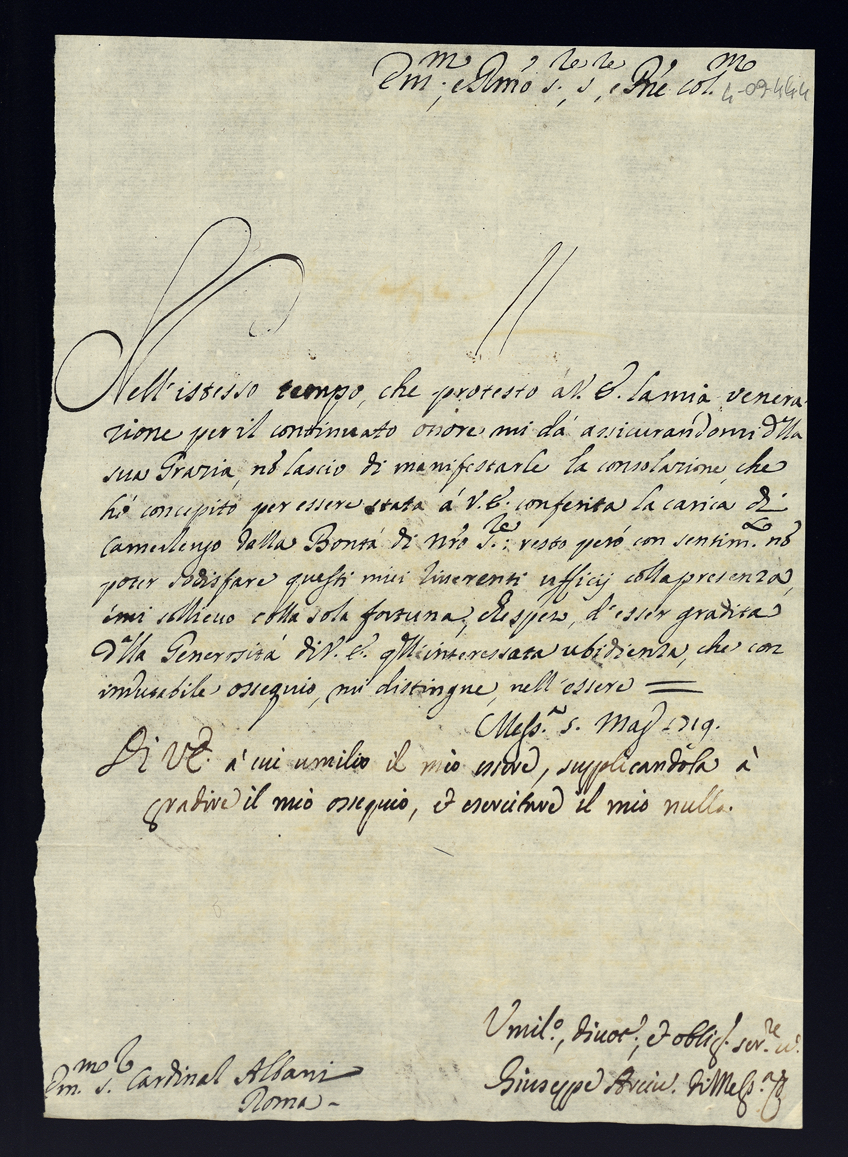 Em.mo e Rmo S.re, S.re, e Pñe Col.mo 4-09-444
Nell'istesso tempo, che protesto á V. E. la mia venera-
zione per il continuato onore mi dá assicurandomi d'lla
sua Grazia, nõ lascio di manifestarle la consolazione, che
hó concepito per essere stata á V. E. conferita la carica di
Camerlengo dalla Bontá di nr̃o S.re: resto però con sentim.o nõ
poter sodisfare questi miei riverenti ufficij colla presenza,
é mi sollievo colla sola fortuna, che spero, d'esser gradita
d'lla Generositá di V. E. q̃ll'interessata ubidienza, che con
indubabile ossequio, mi distingue, nell'essere =
Mess.a 5. Mag 1719.
Di V.E. a cui umilio il mio essere, supplicandola à
gradire il mio ossequio, et esercitare il mio nulla.
Umil.o, divot.o, et oblig.o ser.re v.
Giuseppe Arciv. di Mess.a
Em.mo S.r Cardinal Albani
Roma -